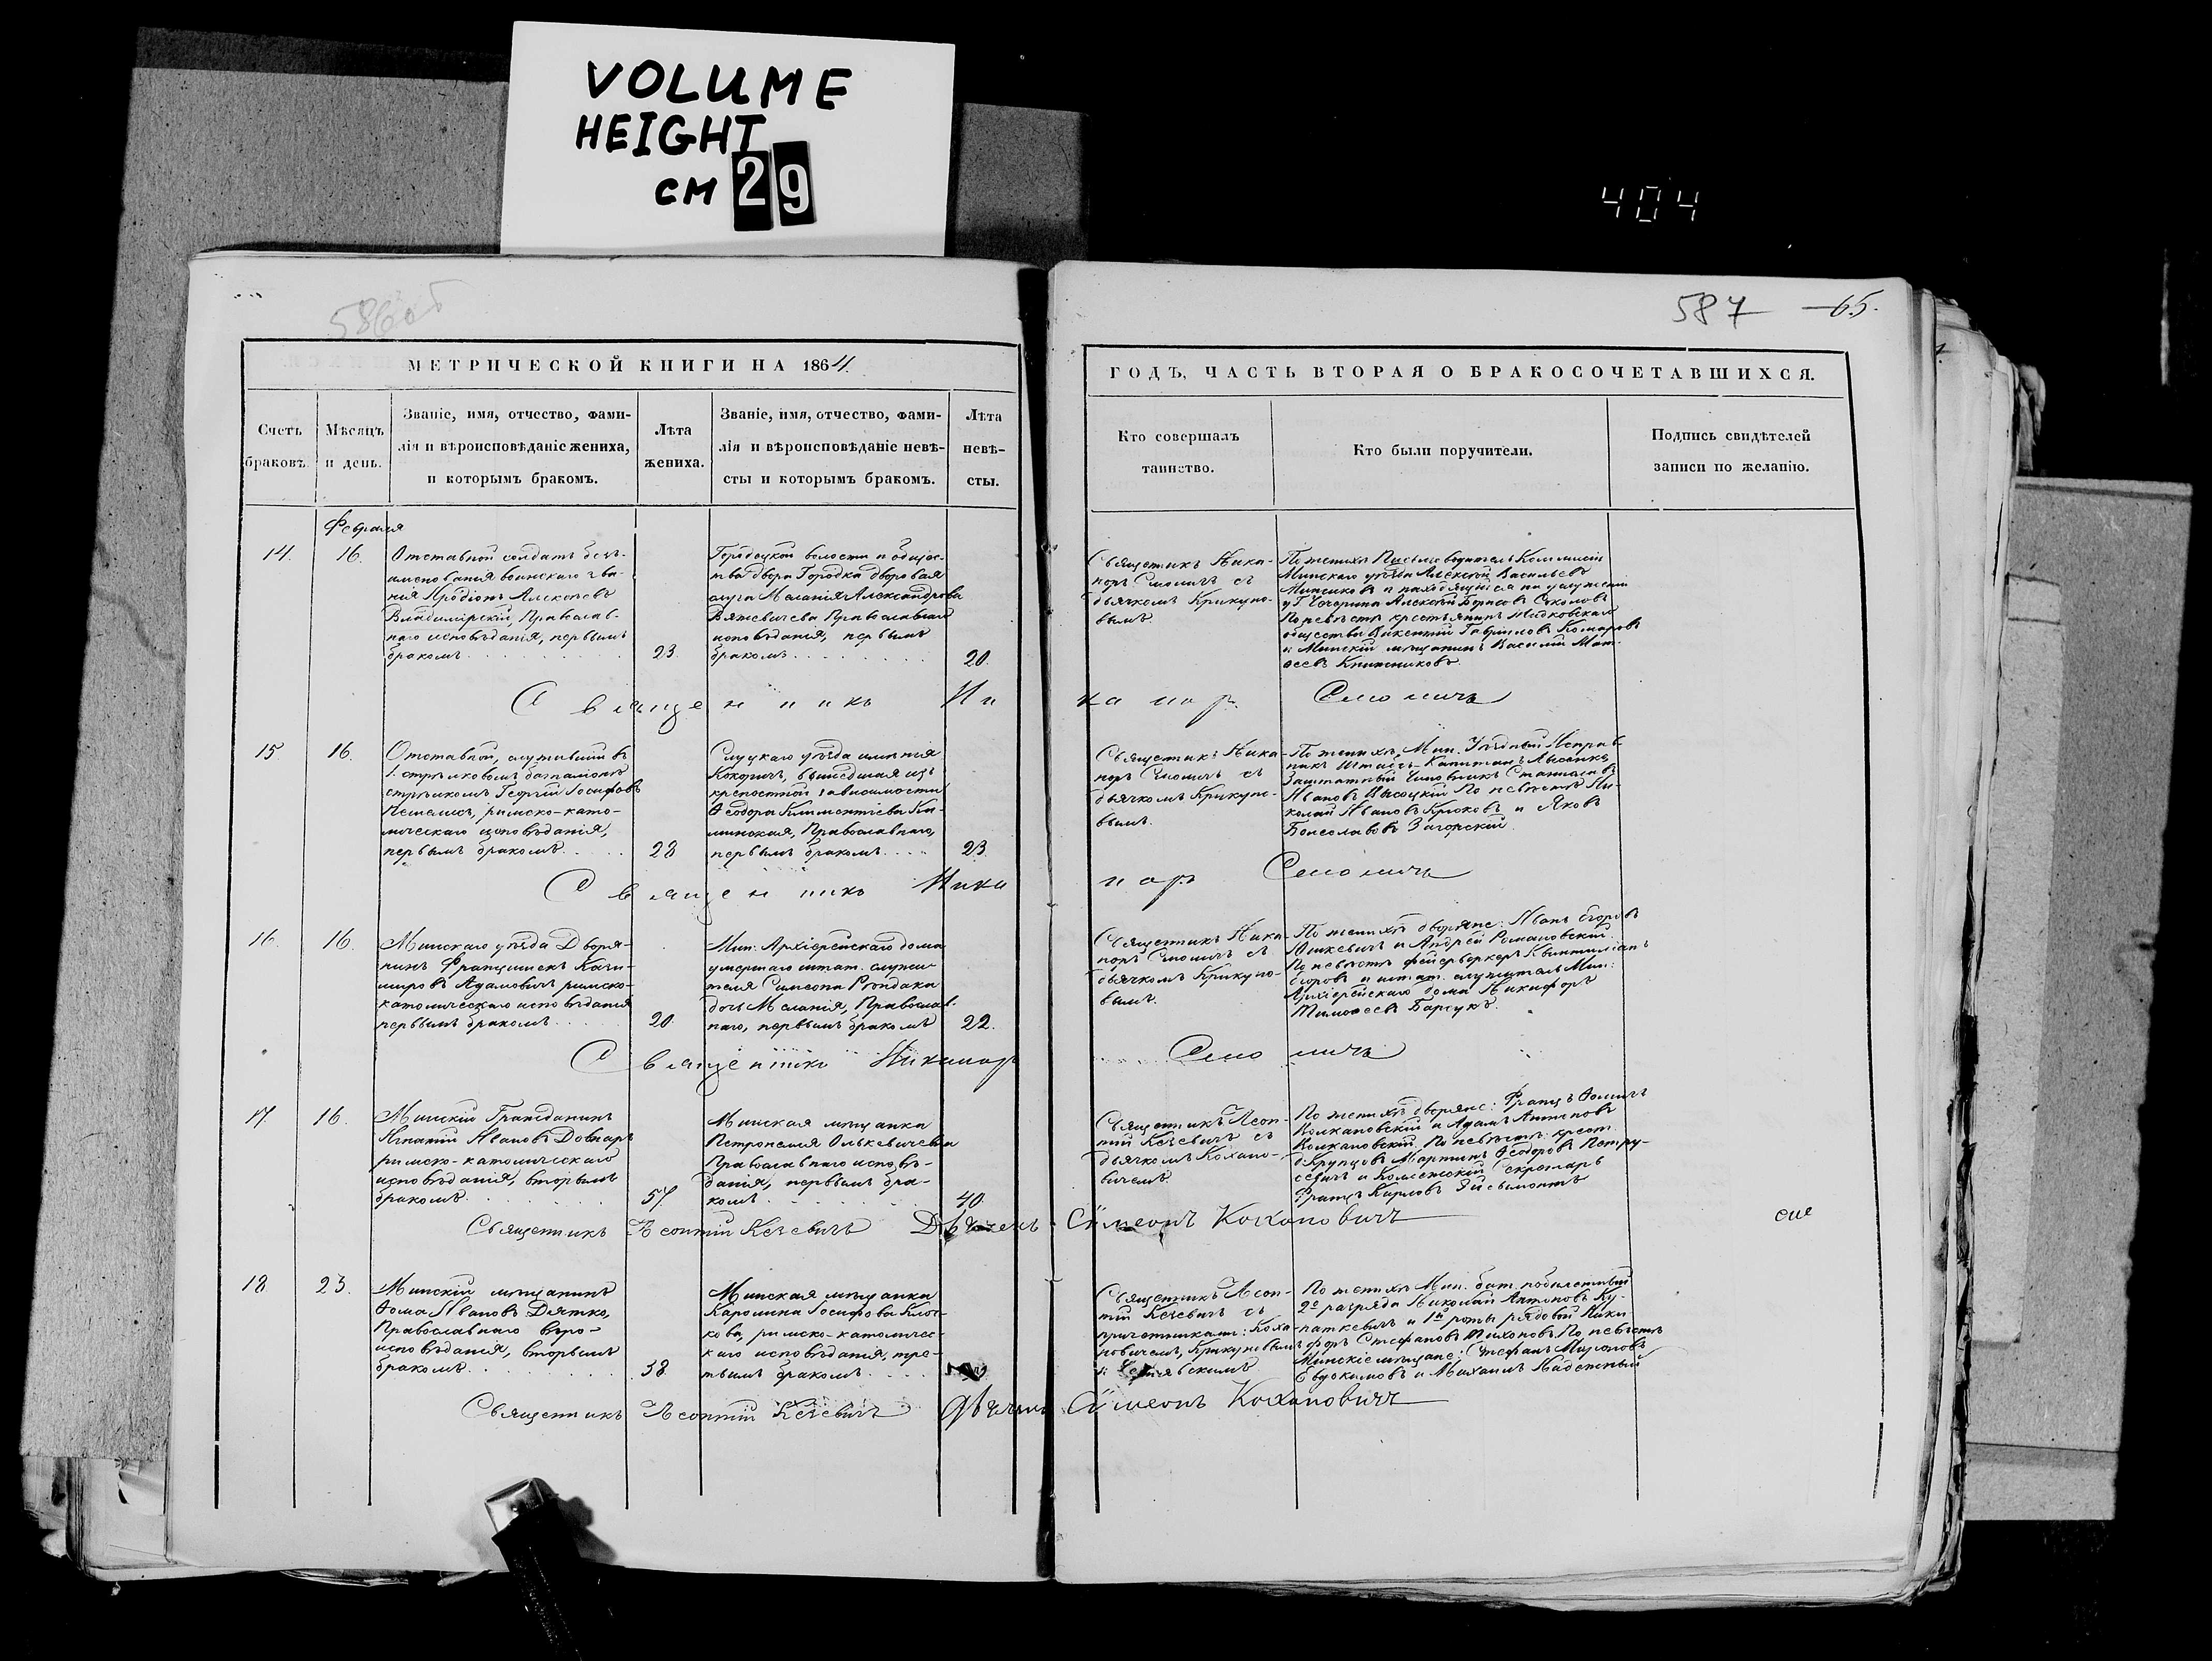 VOLUME
HEIGHT
CM 29
404
586об
587 65.
МЕТРИЧЕСКОЙ КНИГИ НА 1864
ГОДЪ, ЧАСТЬ ВТОРАЯ О БРАКОСОЧЕТАВШИХСЯ.
Счетъ браковъ.
Мѣсяцъ и день.
Званіе, имя, отчество, фами-
лія и вѣроисповѣданіе жениха,
и которымъ бракомъ.
Лѣта
жениха.
Званіе, имя, отчество, фами-
лія и вѣроисповѣданіе невѣ-
сты и которымъ бракомъ.
Лѣта
невѣ-
сты.
Кто совершалъ
таинство.
Кто были поручители.
Подпись свидѣтелей
записи по желанію.
Февраля
14. 16.
Отставной солдатъ безъ-
именованія воинскаго зва-
нія Иродіонъ Алексѣевъ
Владимірскій, Православ-
наго исповѣданія, первымъ
бракомъ 23.
Городецкой волости и общес-
тва двора Городка дворовая
слуга Меланія Александрова
Вяжевичева Православнаго
исповѣданія, первымъ
бракомъ 20.
Священникъ Ника-
норъ Смоличъ съ
дьячкомъ Крикуно-
вымъ
По женихѣ Письмоводитель Коммисіи
Минскаго уѣзда Алексѣй Васильевъ
и находящійся на услуженіи
у Г. Алексѣй Борисовъ Соколовъ
По невѣстѣ крестьянинъ
общества Викентій Гавриловъ Комаровъ
и Минскій мѣщанинъ Василій Мат-
ѳеевъ Книжниковъ.
Священникъ Никаноръ Смоличъ
15 16.
Отставной, служившій въ
1. стрѣлковомъ баталіонѣ
стрѣлкомъ Георгій Іосифовъ
римско-като-
лическаго исповѣданія,
первымъ бракомъ 28
Слуцкаго уѣзда имѣнія
Кокоричъ, вышедшая изъ
крепостной зависимости
Ѳеодора Климентіева Ка-
минская, Православнаго,
первымъ бракомъ 23.
Священникъ Ника-
норъ Смоличъ съ
дьячкомъ Крикуно-
вымъ.
По женихѣ, Мин. Уѣздный Исправ-
никъ Штабсъ-Капитанъ Лысенко,
Заштатный Чиновникъ Станиславъ
Ивановъ Высоцкій По невѣстѣ Ни-
колай Ивановъ Крюковъ и Яковъ
Болеславовъ Загорскій.
Священникъ Никаноръ Смоличъ
16. 16.
Минскаго уѣзда Дворя-
нинъ Францишекъ Кази-
мировъ Адамовичъ римско-
католическаго исповѣданія
первымъ бракомъ 20.
Мин. Архіерейскаго дома
умершаго штат. служи-
теля Симеона Рондака
дочь Меланія, Православ-
наго, первымъ бракомъ 22.
Священникъ Ника-
норъ Смоличъ съ
дьячкомъ Крикуно-
вымъ.
По женихѣ дворяне: Иванъ Егоровъ
Юшкевичъ и Андрей Романовскій.
По невѣстѣ фейерверкеръ Квинтиліанъ
Егоровъ и штат. служитель Мин:
Архіерейскаго дома Никифоръ
Тимоѳеевъ Барсукъ.
Священникъ Никаноръ Смоличъ
17. 16.
Минскій Гражданинъ
Игнатій Ивановъ Довнаръ
римско-католическаго
исповѣданія, вторымъ
бракомъ 57.
Минская мѣщанка
Петронелія Олькевичева
Православнаго исповѣ-
данія, первымъ бра-
комъ 40.
Священникъ Леон-
тій Кечевичъ съ
дьячкомъ Кохано-
вичемъ
По женихѣ дворяне: Францъ Ѳомичъ
Волкановскій и Адамъ Антоновъ
Волкановскій. По невѣстѣ: крест.
д. Крупцовъ Мартинъ Ѳеодоровъ Петру-
севичъ и Коллежскій Секретарь
Францъ Карловъ
Священникъ Леонтій Кечевичъ Дьячекъ Сѵмеонъ Кохановичъ
18. 23.
Минскій мѣщанинъ
Ѳома Ивановъ Дятко,
Православнаго вѣро-
исповѣданія, вторымъ
бракомъ 38.
Минская мѣщанка
Каролина Іосифова
кова, римско-католичес-
каго исповѣданія, тре-
тьимъ бракомъ
Священникъ Леон-
тій Кечевичъ съ
причетниками: Коха-
новичемъ, Крикуновымъ
По женихѣ Мин. бат. побилетный
2го разряда Николай Антоновъ Ку-
наткевичъ и 1й роты рядовой Ники-
форъ Стефановъ Тихоновъ По невѣстѣ
Минскіе мѣщане: Стефанъ Мироновъ
Евдокимовъ и Михаилъ Надежный
Священникъ Леонтій Кечевичъ Дьячекъ Сѵмеонъ Кохановичъ